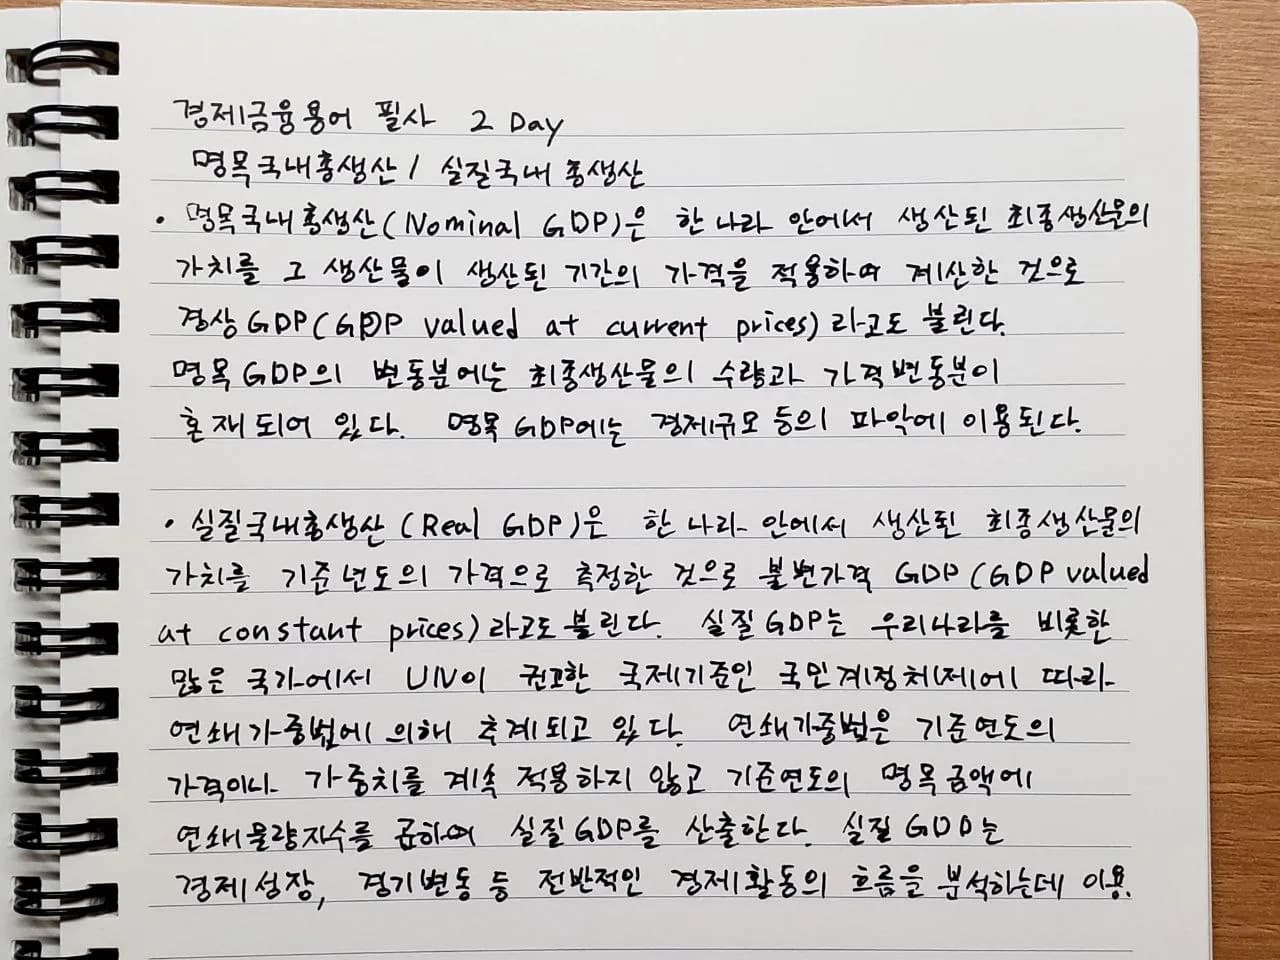 경제금융용어 필사 2 Day
명목국내총생산 / 실질국내총생산
• 명목국내총생산(Nominal GDP)은 한 나라 안에서 생산된 최종생산물의
가치를 그 생산물이 생산된 기간의 가격을 적용하여 계산한 것으로
경상GDP(GDP valued at current prices)라고도 불린다.
명목GDP의 변동분에는 최종생산물의 수량과 가격변동분이
혼재되어 있다. 명목GDP에는 경제규모 등의 파악에 이용된다.
• 실질국내총생산(Real GDP)은 한 나라 안에서 생산된 최종생산물의
가치를 기준년도의 가격으로 측정한 것으로 불변가격 GDP(GDP valued
at constant prices)라고도 불린다. 실질GDP는 우리나라를 비롯한
많은 국가에서 UN이 권고한 국제기준인 국민계정체계에 따라
연쇄가중법에 의해 추계되고 있다. 연쇄가중법은 기준연도의
가격이나 가중치를 계속 적용하지 않고 기준연도의 명목금액에
연쇄물량지수를 곱하여 실질GDP를 산출한다. 실질GDP는
경제성장, 경기변동 등 전반적인 경제활동의 흐름을 분석하는데 이용.